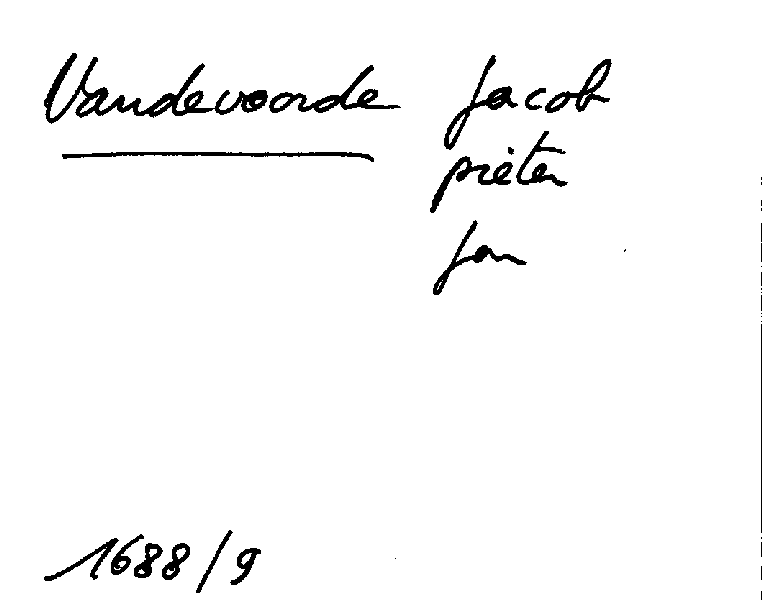 Vandevoorde Jacob
pieter
Jan
1688/9